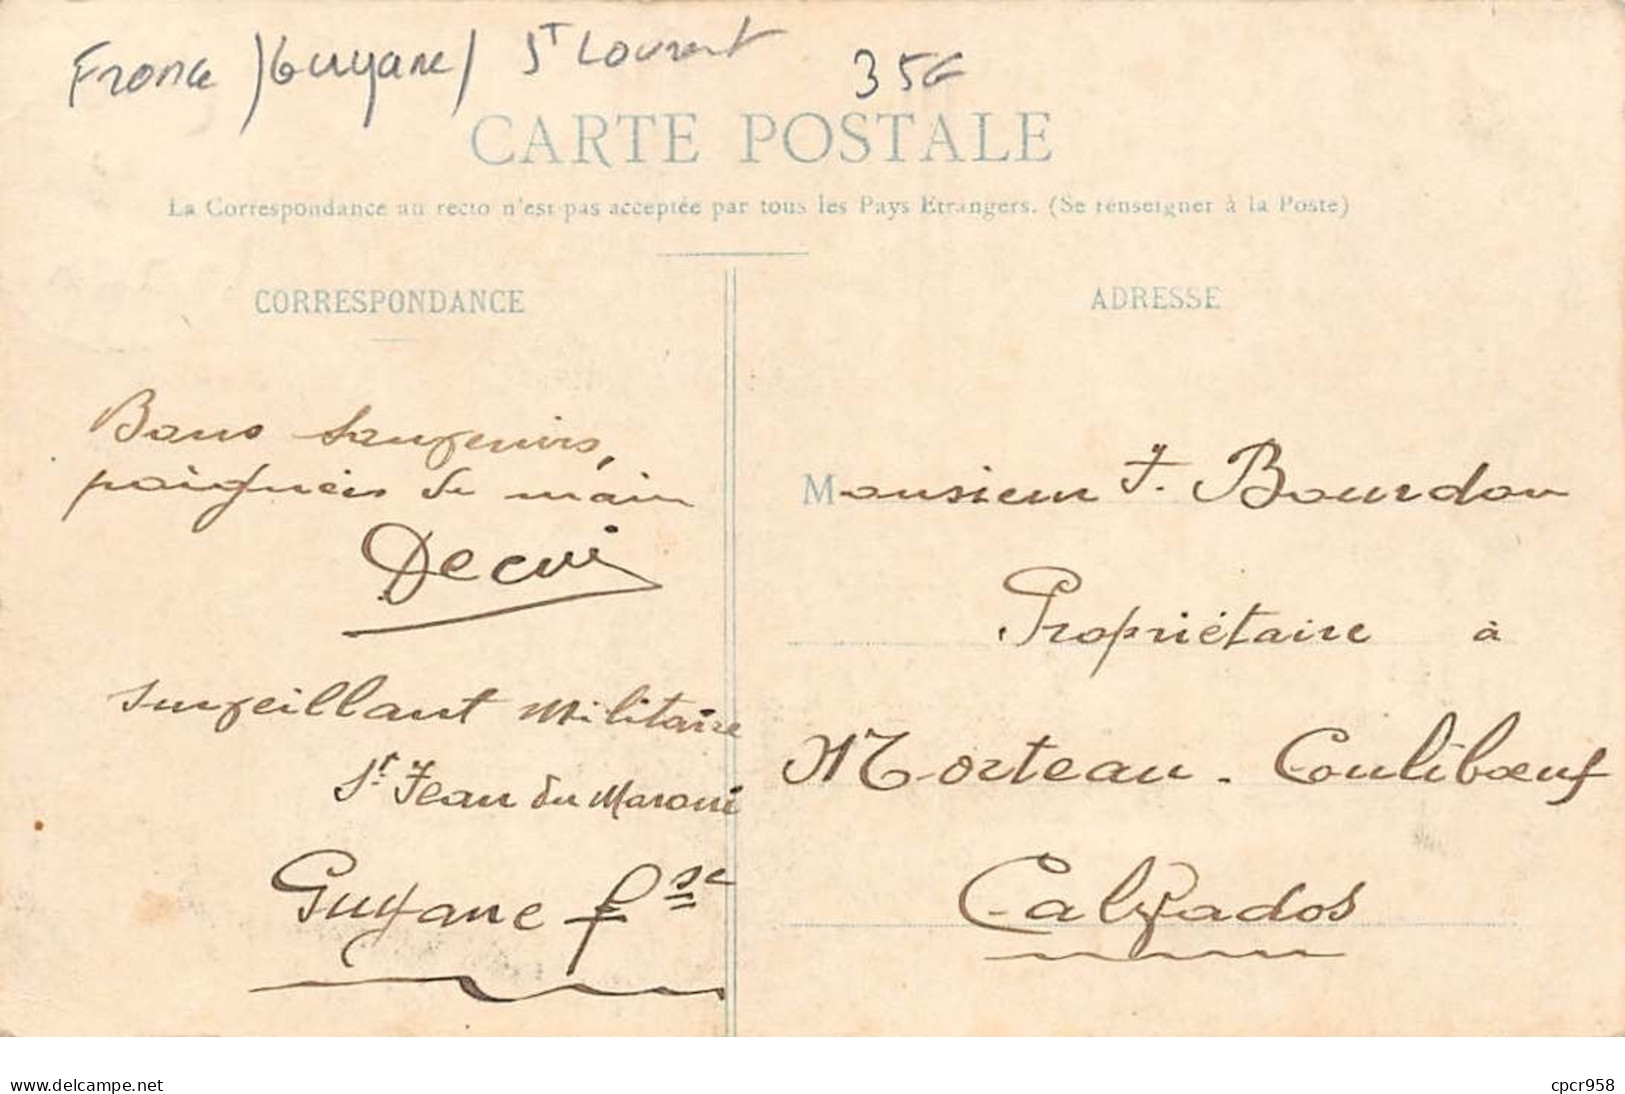 France (Guyane) St Laurent 35€
CARTE POSTALE
La Correspondance au recto n'est pas acceptée par tous les Pays Etrangers. (Se renseigner à la Poste)
CORRESPONDANCE
Bons Souvenirs,
poignées de main
Decui
Surveillant Militaire
St. Jean du Maroni
Guyane fse
ADRESSE
Monsieur J. Bourdon
Propriétaire à
Morteau. Coulibœuf
Calvados
delcampe.net
cpcr958